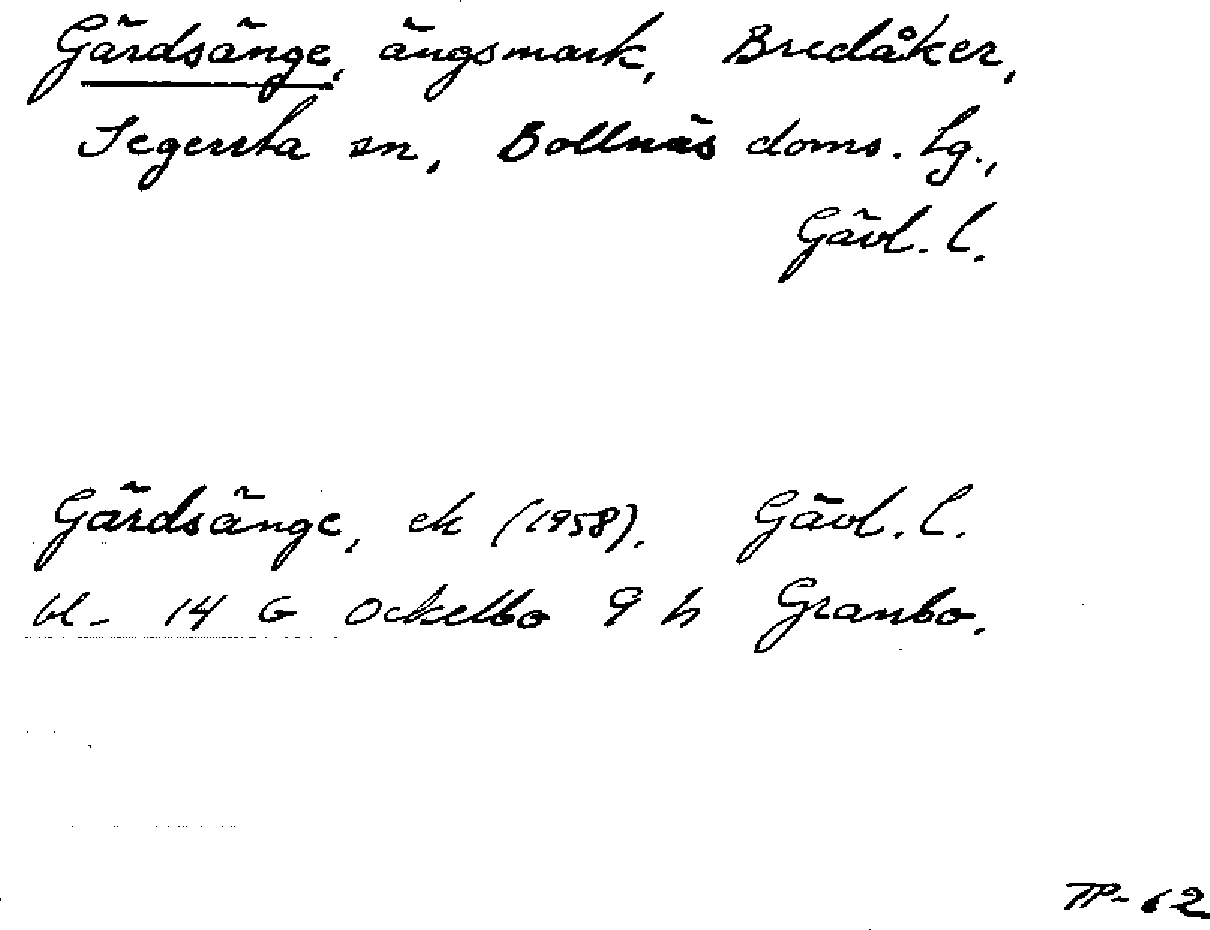 Gärdsänge, ängsmark, Bredåker,
Segersta sn, Bollnäs doms. tg.,
Gävl. l.
Gärdsänge, ek (1958). Gävl. l.
bl. 14 G Ockelbo 9 h Granbo.
TP-62